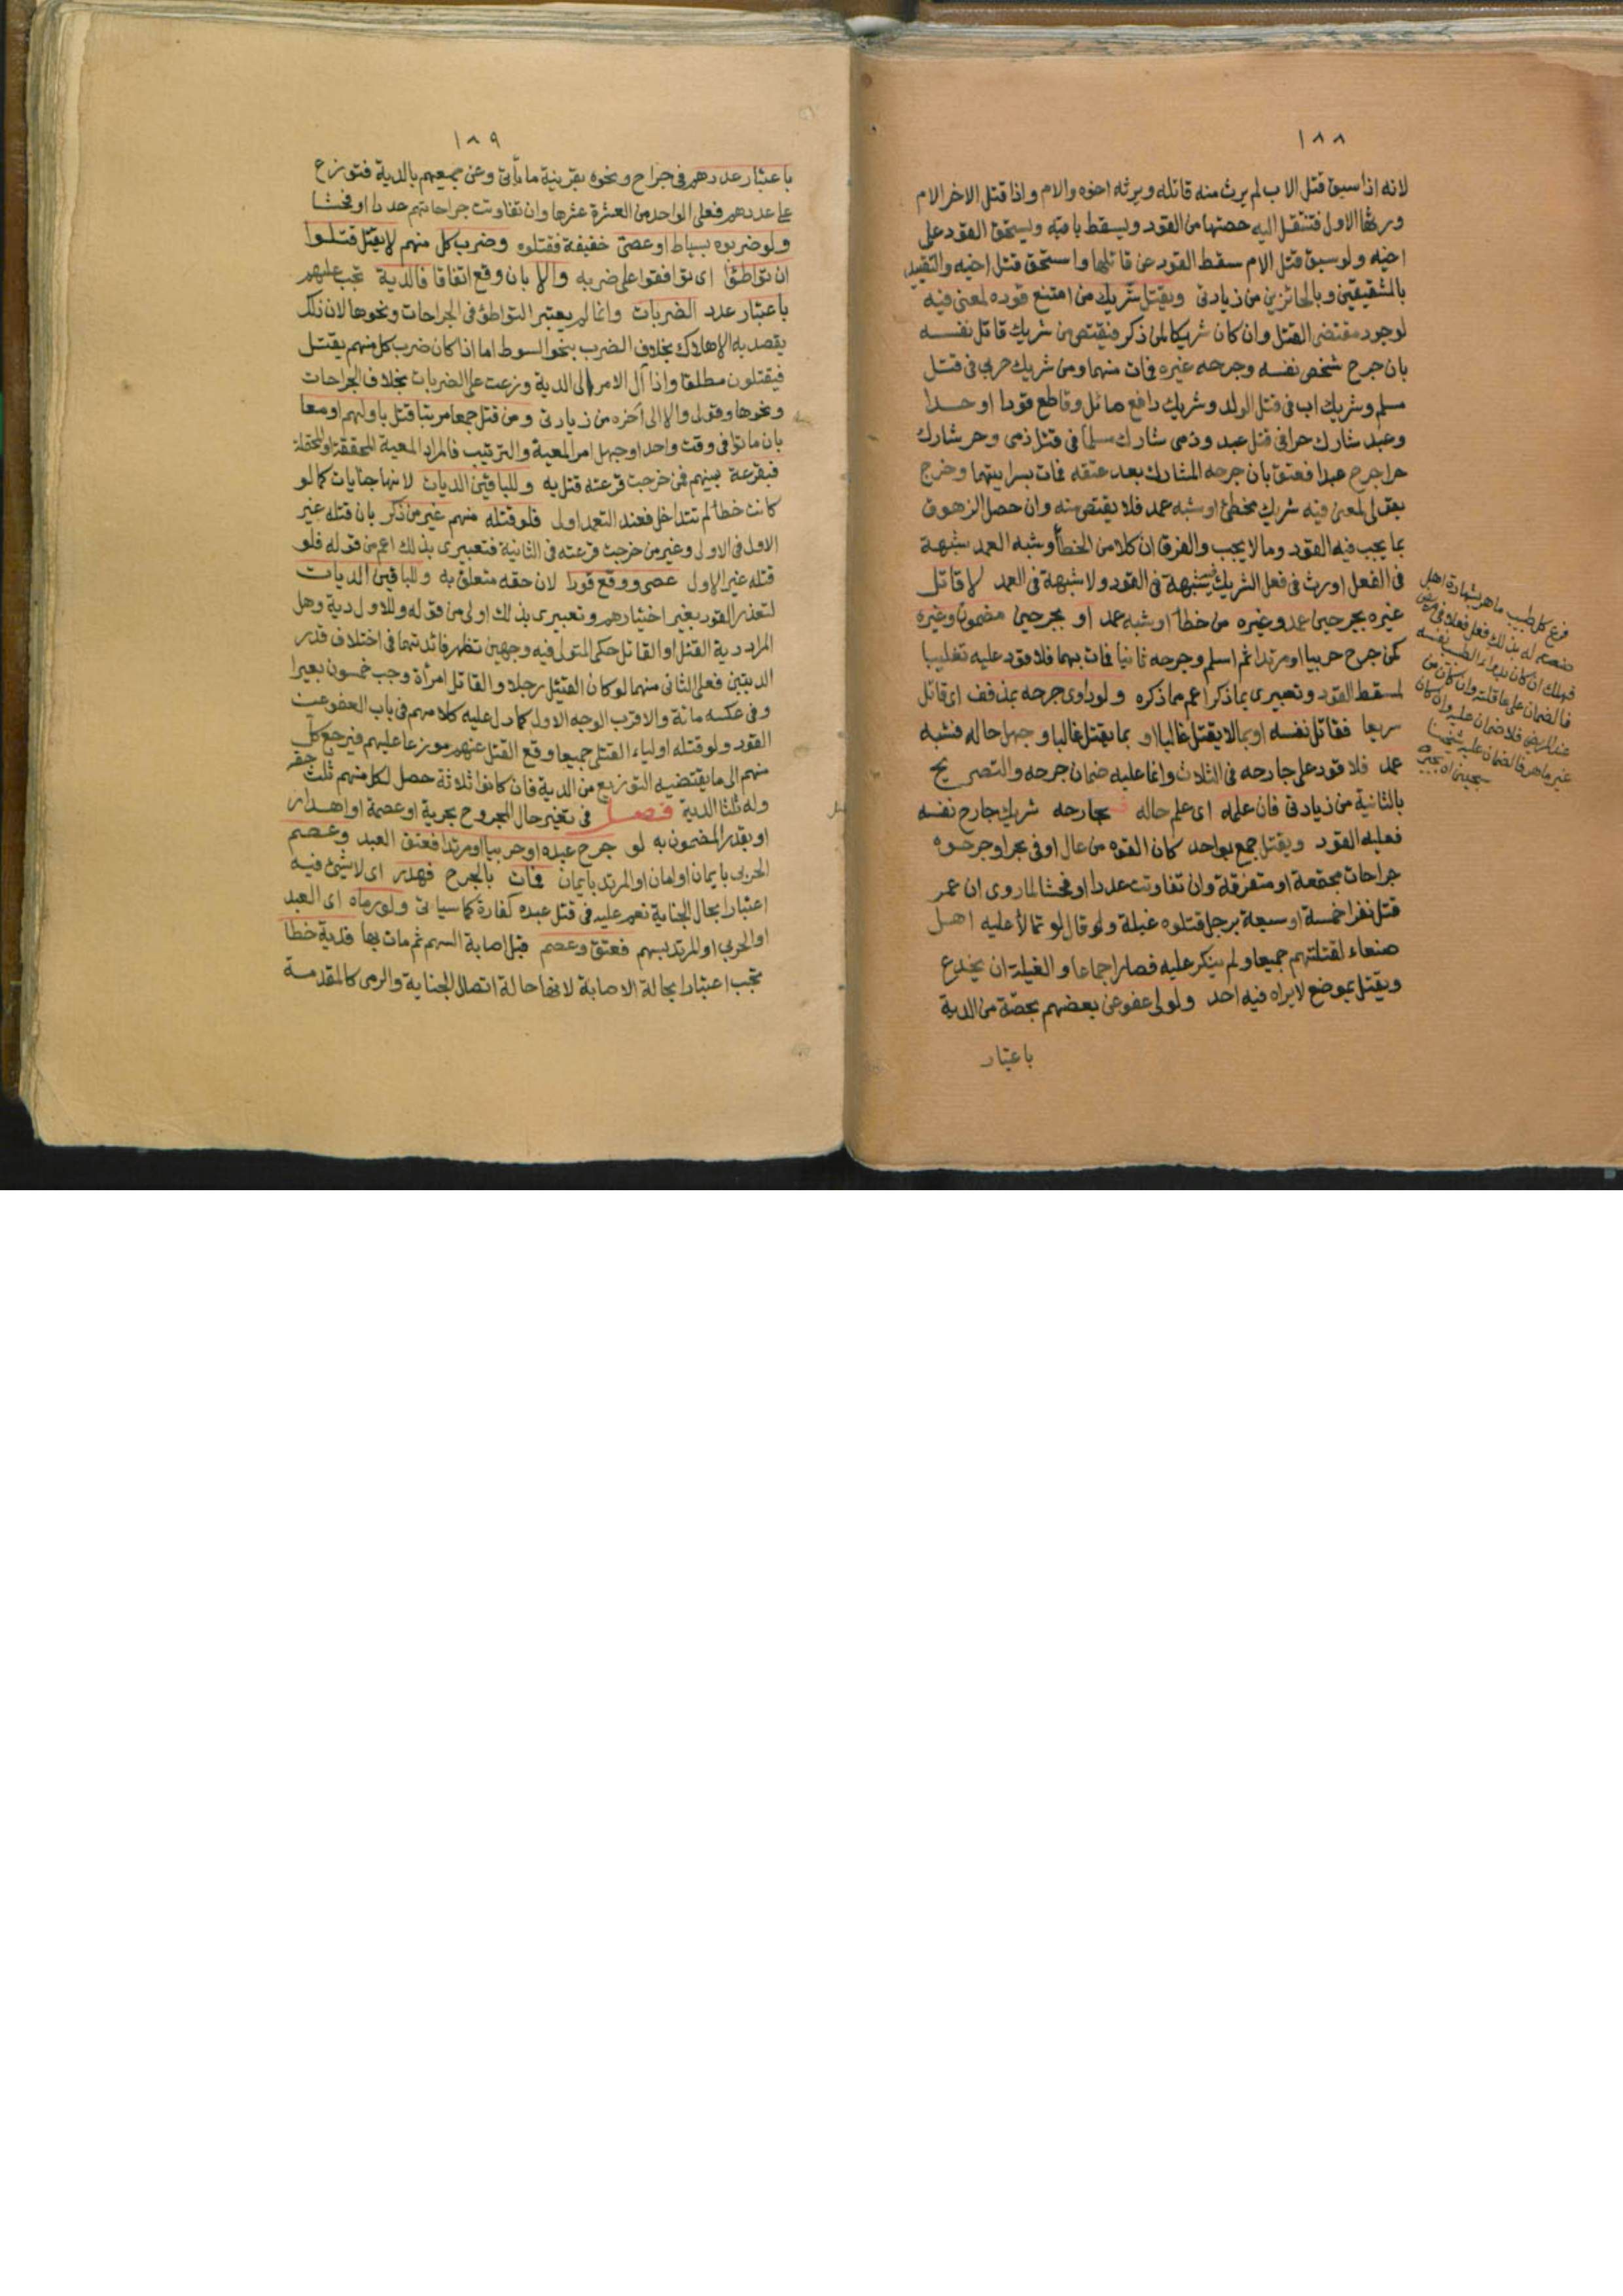 ١٨٨
لانه اذا سبق قتل الاب لم يرث منه قاتله ويرثه اخوه والام واذا قتل الاخر الام
ورثها الاول فتنتقل اليه حصتها من القود ويسقط باقيه ويستحق القود على
اخيه ولو سبق قتل الام سقط القود عن قاتلها واستحق قتل اخيه والتقييد
بالشقيقين وبالحائزين من زيادتى ويقتل شريك من امتنع قوده لمعنى فيه
لوجود مقتضى القتل وان كان شريكا لمن ذكر فيقتص من شريك قاتل نفسه
بان جرح شخص نفسه وجرحه غيره فمات منهما ومن شريك حربي فى قتل
مسلم وشريك اب فى قتل الولد وشريك دافع صائل وقاطع قودا او حدا
وعبد شارك حرا فى قتل عبد وذمى شارك مسلما فى قتل ذمى وحر شارك
حرا جرح عبدا فعتق بان جرحه المشارك بعد عتقه فمات بسرايتهما وخرج
بقولى لمعنى فيه شريك مخطئ او شبه عمد فلا يقتص منه وان حصل الزهوق
بما يجب فيه القود وما لا يجب والفرق ان كلا من الخطأ وشبه العمد شبهة
فى الفعل اورث فى فعل الشريك شبهة فى القود ولا شبهة فى العمد لا قاتل
غيره بجرحين عمد وغيره من خطأ او شبه عمد او بجرحين مضمون وغيره
كمن جرح حربيا او مرتدا ثم اسلم وجرحه ثانيا فمات بهما فلا قود عليه تغليبا
لمسقط القود وتعبيرى بما ذكر اعم مما ذكره ولو داوى جرحه بمذفف اى قاتل
سريعا فقاتل نفسه او بما لا يقتل غالبا او بما يقتل غالبا وجهل حاله فشبه
عمد فلا قود على جارحه فى الثلاث وانما عليه ضمان جرحه والتصريح
بالثانية من زيادتى فان علمه اى علم حاله فجارحه شريك جارح نفسه
فعليه القود ويقتل جمع بواحد كان القوه من عال او فى بحر او جرحوه
جراحات مجتمعة او متفرقة وان تفاوتت عددا او فحشا لما روى ان عمر
قتل نفرا خمسة او سبعة برجل قتلوه غيلة ولو قال لو تمالأ عليه اهل
صنعاء لقتلتهم جميعا ولم ينكر عليه فصار اجماعا والغيلة ان يخدع
ويقتل بموضع لا يراه فيه احد ولولى عفو عن بعضهم بحصته من الدية
باعتبار
فرع كل طبيب ماهر بشهادة اهل
صنعته له بذلك فعل فعلا فى مريض
فهلك ان كان بدواء الطبيب نفسه
فالضمان على عاقلته وان كان من
عند المريض فلا ضمان عليه وان كان
غير ماهر فالضمان عليه شيخنا
١٨٩
باعتبار عددهم فى جراح ونحوه بقرينة ما يأتى وعن جميعهم بالدية فتوزع
على عددهم فعلى الواحد من العشرة عشرها وان تفاوتت جراحاتهم عددا او فحشا
ولو ضربوه بسياط او عصى خفيفة فقتلوه وضرب كل منهم لا يقتل قتلوا
ان تواطؤا اى توافقوا على ضربه والا بان وقع اتفاقا فالدية تجب عليهم
باعتبار عدد الضربات وانما لم يعتبر التواطؤ فى الجراحات ونحوها لان ذلك
يقصد به الاهلاك بخلاف الضرب بنحو السوط اما اذا كان ضرب كل منهم يقتل
فيقتلون مطلقا واذا آل الامر الى الدية وزعت على الضربات بخلاف الجراحات
ونحوها وقولى والا الى آخره من زيادتى ومن قتل جمعا مرتبا قتل باولهم او معا
بان ماتوا فى وقت واحد او جهل امر المعية والترتيب فالمراد المعية المحققة او المحتملة
فبقرعة بينهم فمن خرجت قرعته قتل به وللباقين الديات لانها جنايات كما لو
كانت خطأ لم تتداخل فعند التعمد اولى فلو قتله منهم غير من ذكر بان قتله غير
الاول فى الاولى وغير من خرجت قرعته فى الثانية فتعبيرى بذلك اعم من قوله فلو
قتله غير الاول عصى ووقع قودا لان حقه متعلق به وللباقين الديات
لتعذر القود بغير اختيارهم وتعبيرى بذلك اولى من قوله وللاول دية وهل
المراد دية القتل او القاتل حكى المتولى فيه وجهين تظهر فائدتهما فى اختلاف قدر
الديتين فعلى الثانى منهما لو كان القتيل رجلا والقاتل امرأة وجب خمسون بعيرا
وفى عكسه مائة والاقرب الوجه الاول كما دل عليه كلامهم فى باب العفو عن
القود ولو قتله اولياء القتلى جميعا وقع القتل عنهم موزعا عليهم فيرجع كل
منهم الى ما يقتضيه التوزيع من الدية فان كانوا ثلاثة حصل لكل منهم ثلث حقه
وله ثلثا الدية فصل فى تغير حال المجروح بحرية او عصمة او اهدار
او بقدر المضمون به لو جرح عبده او حربيا او مرتدا فعتق العبد وعصم
الحربى بايمان او امان او المرتد بايمان فمات بالجرح فهدر اى لا شئ فيه
اعتبارا بحال الجناية نعم عليه فى قتل عبده كفارة كما سيأتى ولو رماه اى العبد
او الحربى او المرتد بسهم فعتق وعصم قبل اصابة السهم ثم مات بها فدية خطأ
تجب اعتبارا بحالة الاصابة لانها حالة اتصال الجناية والرمى كالمقدمة